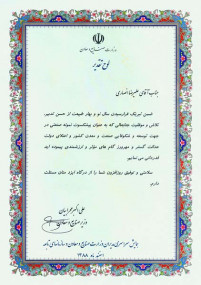 وزارت صنایع و معادن
لوح تقدیر
جناب آقای علیرضا انصاری
ضمن تبریک فرارسیدن سال نو و بهار طبیعت از حسن تدبیر،
تلاش و موفقیت جنابعالی که به عنوان پیشکسوت نمونه صنعتی در
جهت توسعه و شکوفایی صنعت و معدن کشور و اعتلای دولت
خدمت گستر و مهرورز گام های موثر و ارزشمندی پیموده اید
قدردانی می نمایم.
سلامتی و توفیق روزافزون شما را از درگاه ایزد منان مسئلت
دارم.
علی اکبر محرابیان
وزیر صنایع و معادن
همایش سراسری مدیران وزارت صنایع و معادن و سازمانهای تابعه
اسفند ماه ۱۳۸۸